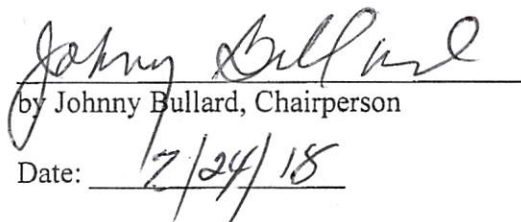 Johnny Bullard
by Johnny Bullard, Chairperson
Date: 7/24/18